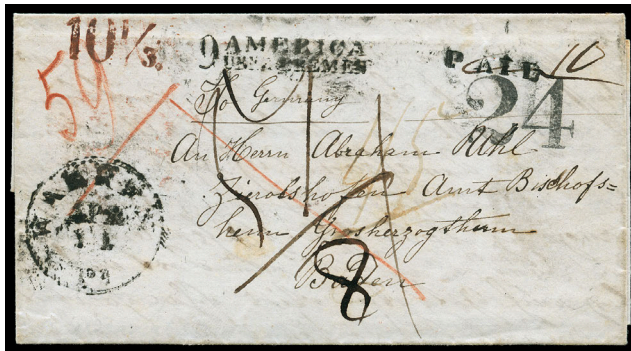 10 1/3.
9 AMERICA
UBER BREMEN
PAID 10
24
59
To Germany
An Herrn Abraham Uhl
Zirolshofen Amt Bischofs=
heim Grosherzogtherm
Baden
8
APR
11